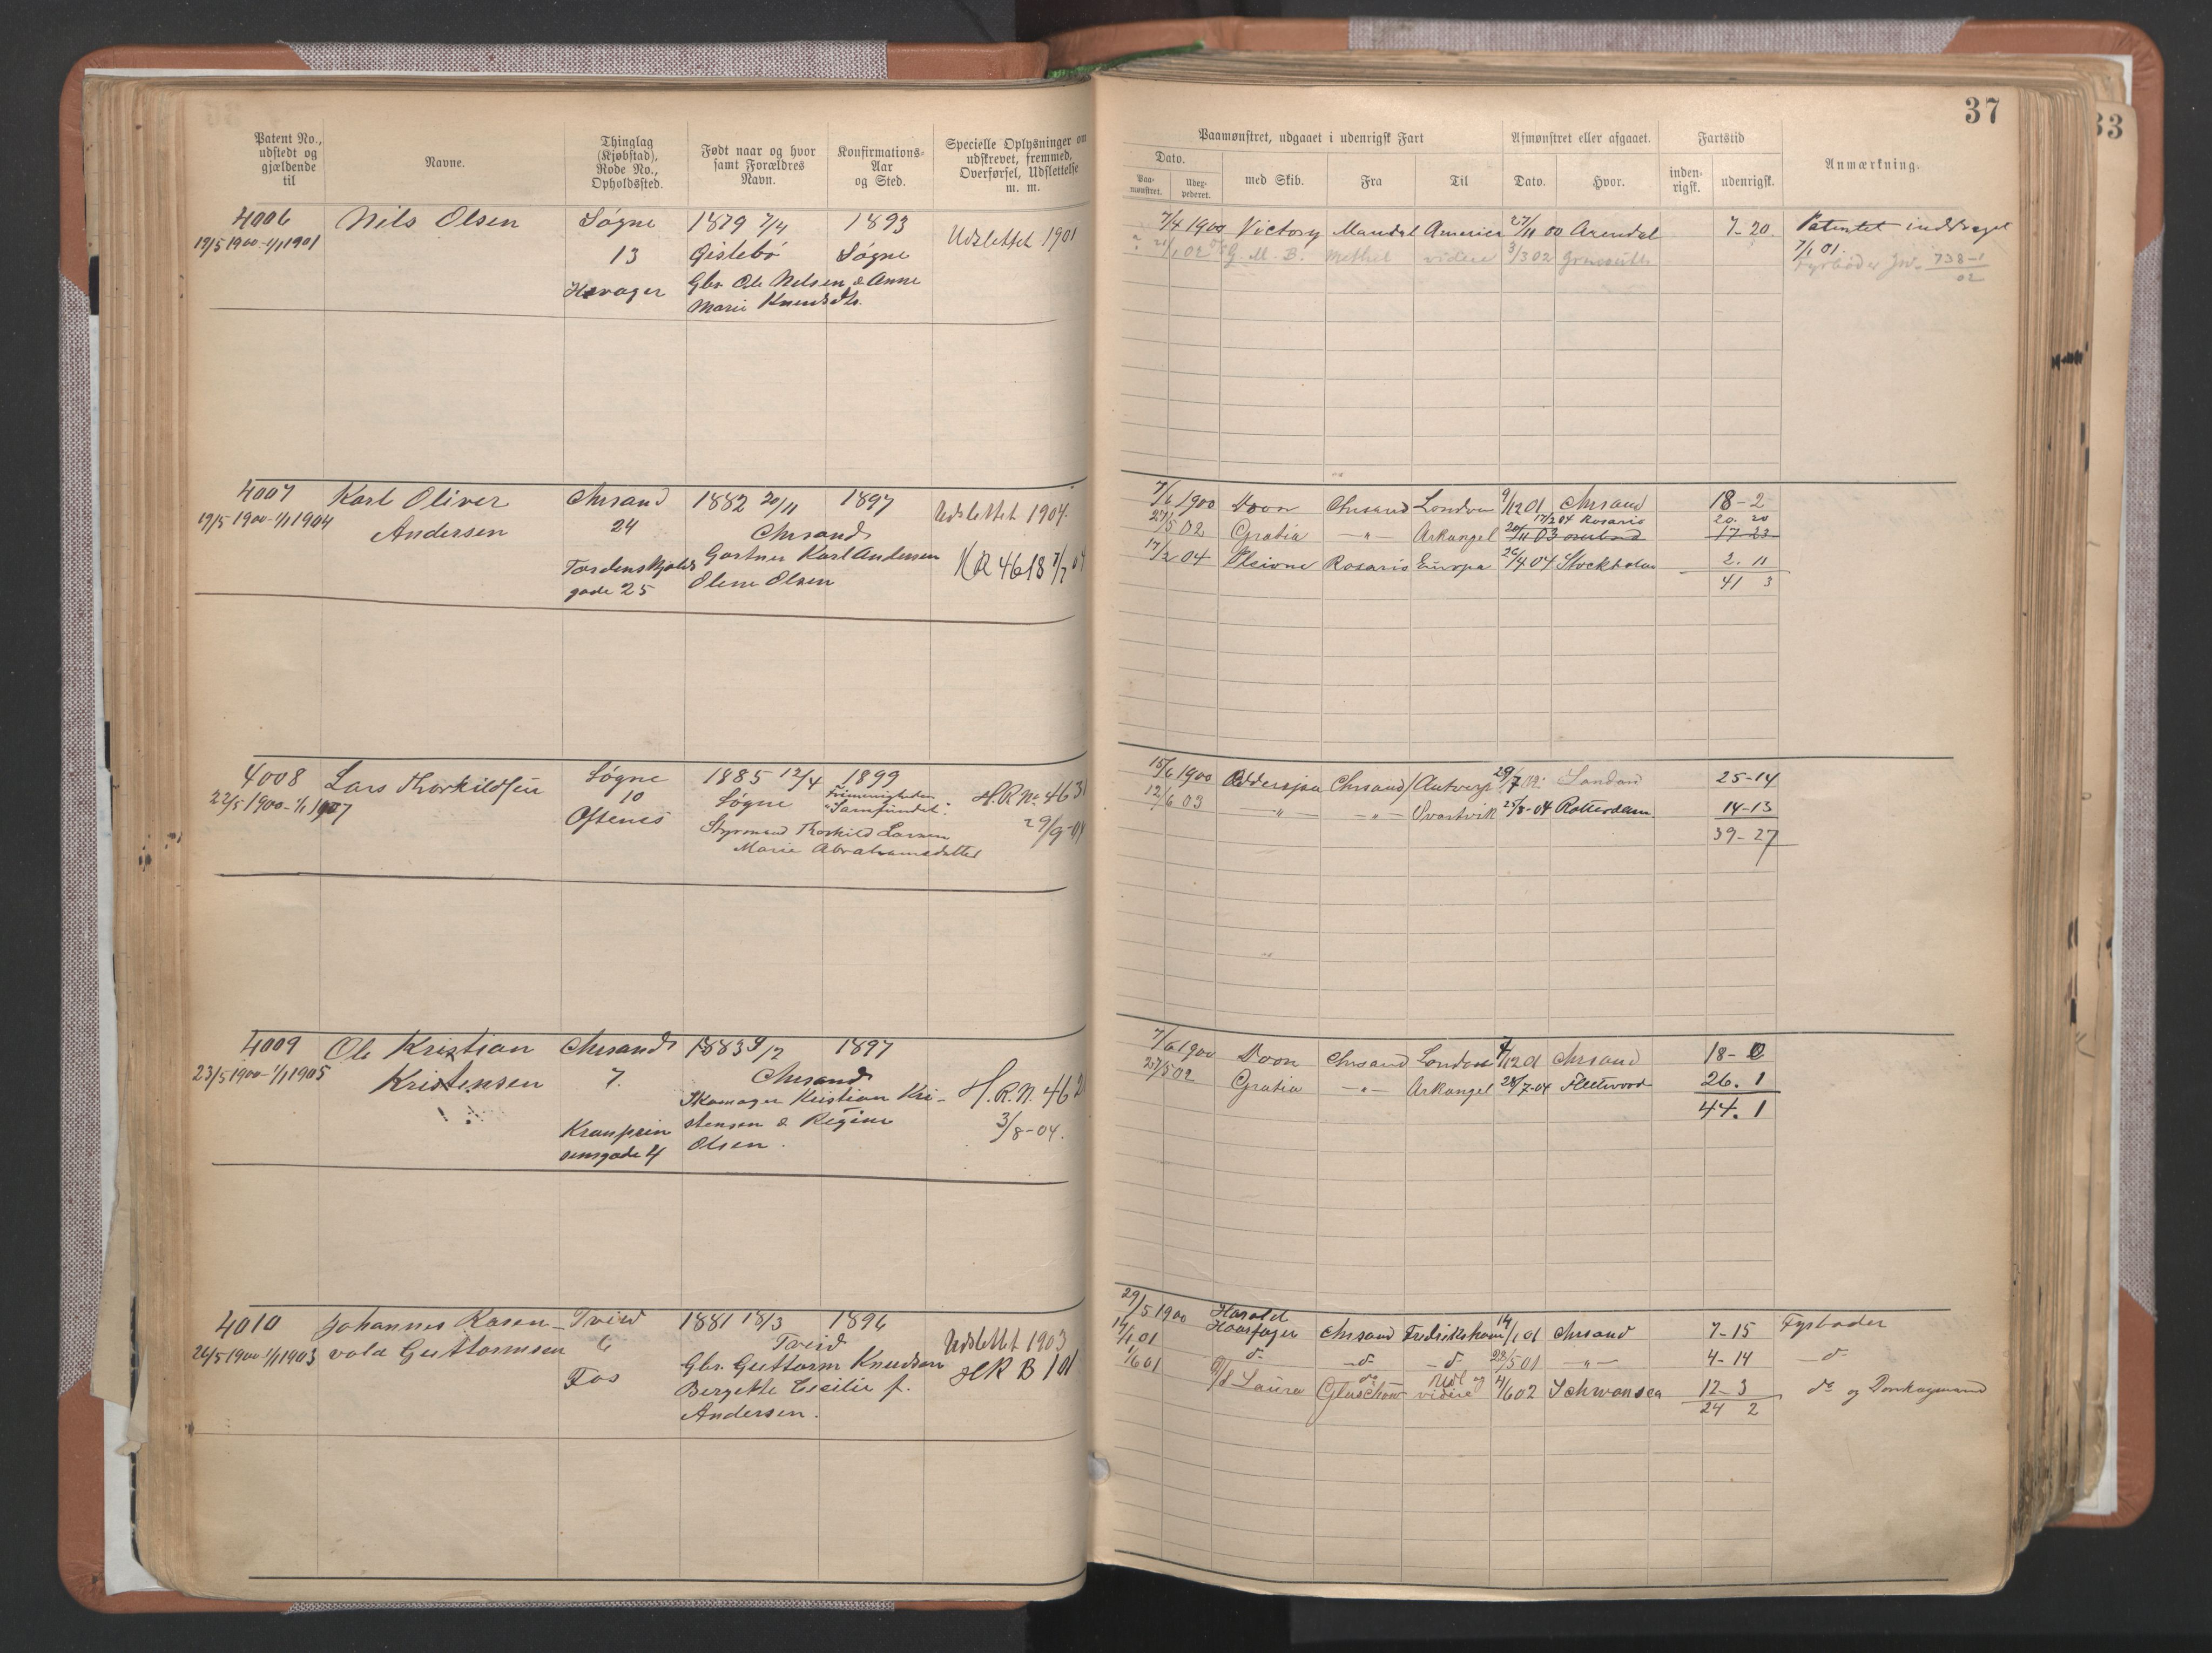 37
33
Patent No., udstedt og gjældende til
Navne.
Thinglag (Kjøbstad), Rode No., Opholdssted.
Født naar og hvor samt Forældres Navn.
Konfirmations-Aar og Sted.
Specielle Oplysninger om udskrevet, fremmed, Overførsel, Udslettelse m. m.
Paamønstret, udgaaet i udenrigsk Fart
Afmønstret eller afgaaet.
Fartstid
Anmærkning.
Dato.
Paa-mønstret.
med Skib.
Fra
Til
Dato.
Hvor.
inden-rigsk.
udenrigsk.
4006 Nils Olsen Søgne 1879 7/4 1893 Udslettet 1901
19/5 1900-1/1 1901 13 Gislebø Søgne
Gbr. Ole Nilsen & Anne
Marie Knudsdtr.
7/4 1900 Victory Mandal America 27/11 00 Arendal 7-20 Patentet inddraget
7/1 01.
21/1 02 G. M. B. Methel videre 3/3 02 738-1
Fyrbøder 02
4007 Karl Oliver Chrsand 1882 20/11 1897 Udslettet 1904.
19/5 1900-1/1 1904 Andersen 24 Chrsand
Tordenskjolds Gartner Karl Andersen HR 4618 7/7 04
gade 25 Olene Olsen
7/6 1900 Doon Chrsand London 9/12 01 Chrsand 18-2
17/2 04 Rosario 20. 20
27/5 02 Gratia -"- Arkangel 20/11 03 17-23
17/2 04 Alsione Rosario Europa 26/4 04 Stockholm 2. 11
41 3
4008 Lars Thorkildsen Søgne 1885 12/4 1899 H.R.No. 463
22/5 1900-1/1 1907 10 Søgne Frimenigheden
Oftenes "Samfundet". 29/9-04
Styrmand Thorkild Larsen
Marie Abrahamsdatter
15/6 1900 Chrsand Antwerp 29/7 02 London 25-14
12/6 03 -"- -"- Svartvik 25/8-04 Rotterdam. 14-13
39-27
4009 Ole Kristian Chrsand 1883 9/2 1897
23/5 1900-1/1 1905 Kristensen 7. Chrsand
Skomager Kristian Kri- H.R.N. 462
Kronprin stensen & Regine 3/8-04.
sensgade 4 Olsen.
7/6 1900 Doon Chrsand London 9/12 01 Chrsand 18-2
27/5 02 Gratia -"- Arkangel 28/7-04 Fleetwood 26. 1
44. 1
4010 Johannes Rosen- Tveid 1881 18/3 1896 Udslettet 1903
26/5 1900-1/1 1903 vold Guttormsen 6 Tveid HR B 101
Fos Gbr. Guttorm Knudsen
Bergette Cecilie f.
Andersen.
29/5 1900 Harald
Haarfager Chrsand Fredrikshavn 14/1 01 Chrsand 7-15 Fyrbøder
14/1 01 do - do - do 28/5 01 -"- 4-14 - do
1/6 01 D/S Laura Glaschow Udl og videre 4/6 02 Schwansea 12-3 do og Donkeymand
24 2